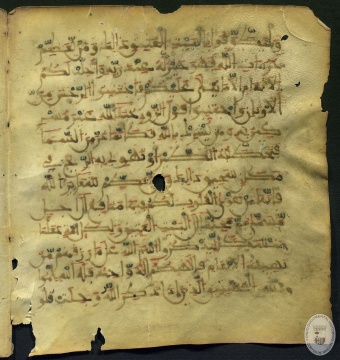 وليطوفوا بالبيت العتيق ذلك ومن يعظم
حرمات الله فهو خير له عند ربه وأحلت لكم
الأنعام إلا ما يتلى عليكم فاجتنبوا الرجس من
الأوثان واجتنبوا قول الزور حنفاء لله غير مشر
كين به ومن يشرك بالله فكأنما خر من السما
ء فتخطفه الطير أو تهوي به الريح في
مكان سحيق ذلك ومن يعظم شعائر الله
فإنها من تقوى القلوب لكم فيها منافع إلى أجل
مسمى ثم محلها إلى البيت العتيق ولكل أمة جعلنا
منسكا ليذكروا اسم الله على ما رزقهم من
بهيمة الأنعام فإلهكم إله واحد فله أسلموا
وبشر المخبتين الذين إذا ذكر الله وجلت قلو